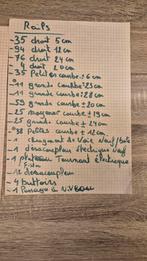 Rails
-35 droit 5 cm
-94 droit 12 cm
-76 droit 24 cm
-4 droit 20 cm
-35 Petit courbe ± 6 cm
-11 grande courbe ± 23 cm
-11 grande courbe ± 28 cm
-59 grande courbe ± 20 cm
-25 moyenne courbe ± 19 cm
-25 grande courbe ± 24 cm
-38 petites courbe ± 12 cm
changement de Voie Neuf/boite
-1 decoupleur électrique neuf
-1 plateau Tournant électrique
-12 decoupleur
-4 buttoirs
-1 Passage à Niveau